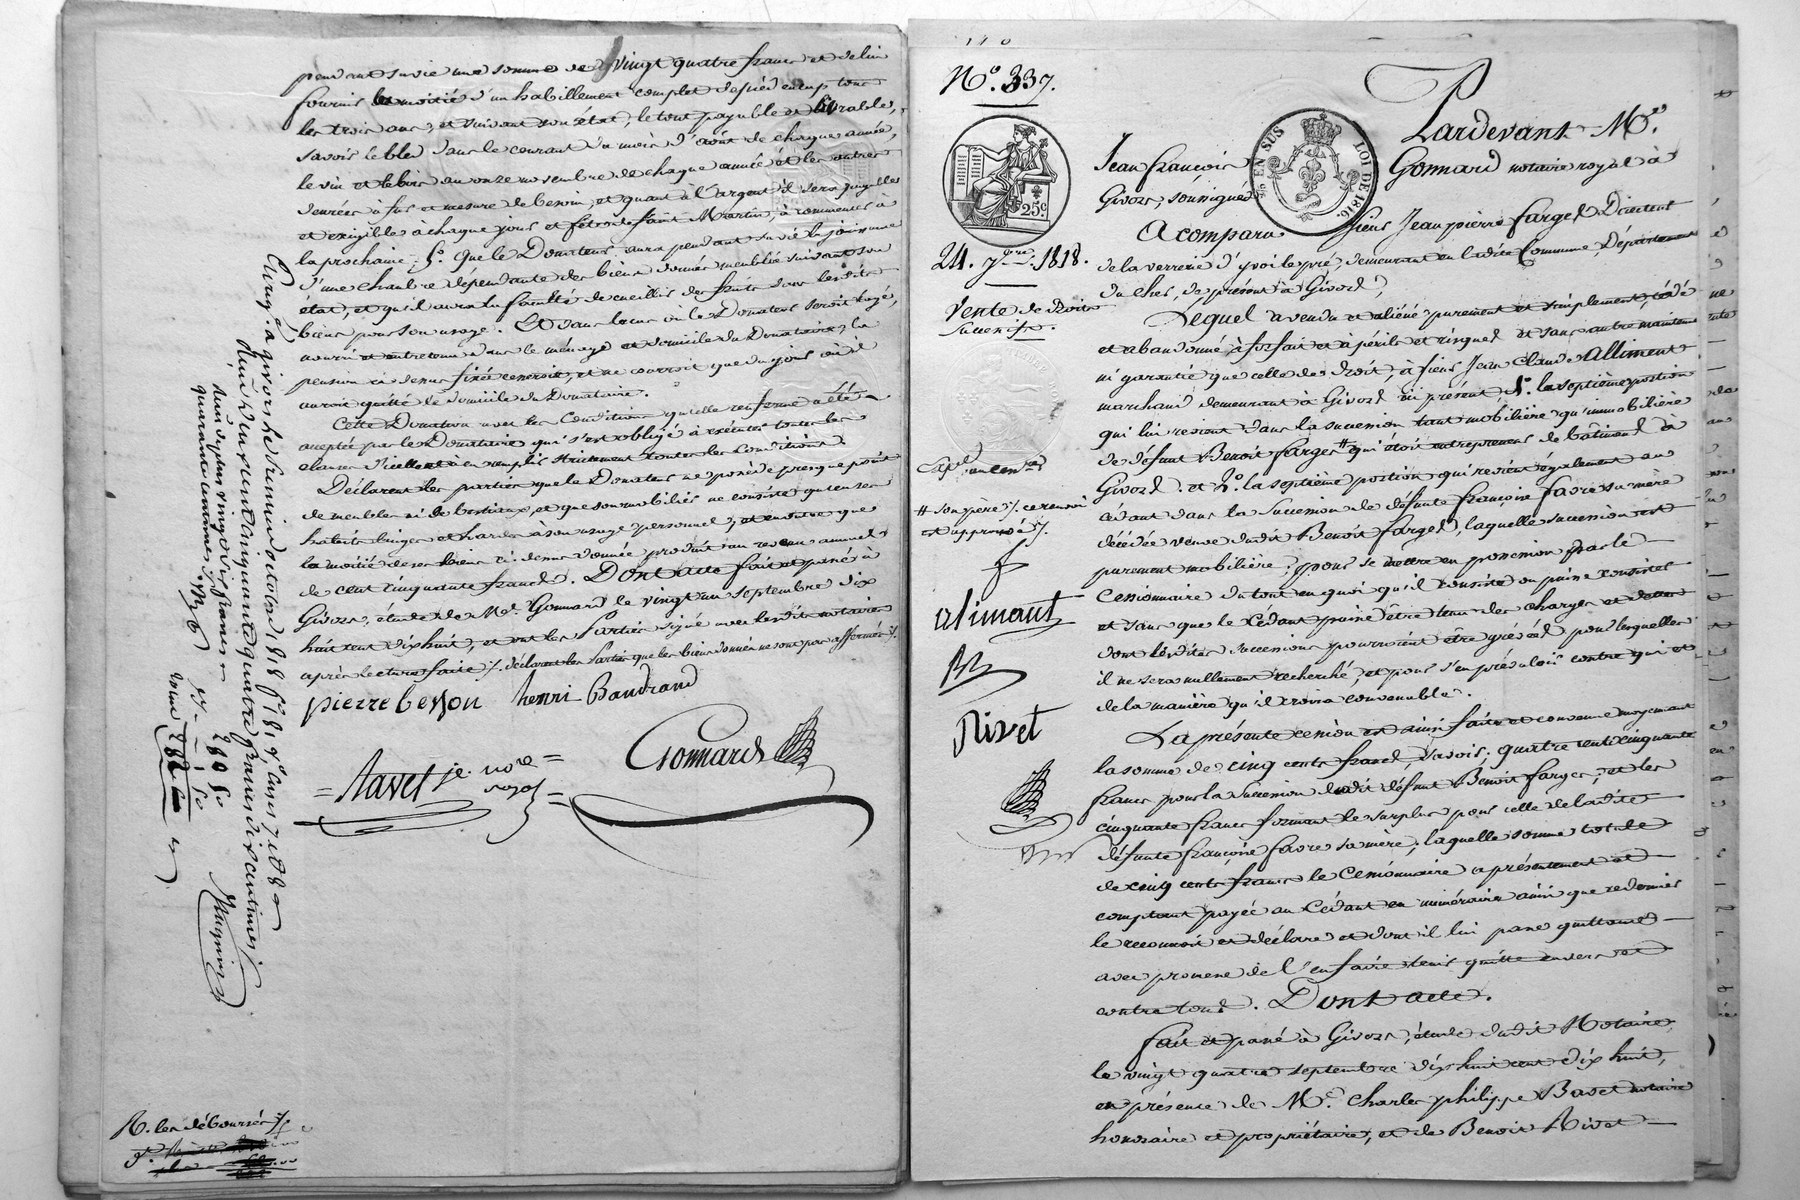 pendant sa vie une somme de vingt quatre francs et de lui
fournir la moitié d'un habillement complet de pied en cap tous
les trois ans, et suivant son état, le tout payable et livrable,
savoir le bled dans le courant du mois d'août de chaque année,
le vin et le bois au onze novembre de chaque année et les autres
denrées à fur et mesure de besoin, et quant à l'argent il sera payable
et exigible à chaque jour et fête de saint Martin, à commencer à
la prochaine; 5º. que le Donateur aura pendant sa vie la jouissance
d'une chambre dépendante des biens donnés meublée suivant son
état, et qu'il aura la faculté de cueillir des fruits dans lesdits
biens pour son usage. Et dans le cas où le Donateur seroit logé,
nourri et entretenu dans le ménage et domicile du Donataire, la
pension ci dessus fixée cesseroit, et ne courroit que du jour où il
auroit quitté le domicile du Donataire.
Cette Donation avec les Conditions qu'elle renferme a été
acceptée par le Donataire qui s'est obligé à exécuter toutes les
clauses d'icelle et à en remplir strictement toutes les conditions.
Déclarent les parties que le Donateur ne possède presque point
de meubles ni de bestiaux, et que son mobilier ne consiste qu'en ses
habits linges et hardes à son usage personnel, et en outre que
la moitié de ses biens ci-dessus donnée produit un revenu annuel
de cent cinquante francs. Dont acte fait et passé à
Givors, étude de Me. Gonnard le vingt un septembre dix
huit cent dix huit, et ont les Parties signé avec lesdits notaires
après lecture faite ./. déclarent les Parties que les biens donnés ne sont pas affermés ./.
pierre besson henri Baudrand
Gonnard
= Navet je. nore =
royal =
Enreg.é à givors le premier octobre 1818 fo. 181 vo. cases 7 et 8
Reçu deux cent cinquante quatre francs dix centimes
R. les déboursés ./.
Nº. 337.
EN SUS
LOI DE 1816.
25c
24. 7bre. 1818.
Vente de Droits
Successifs.
# son père ./. ce renvoi
est approuvé ./.
alimant
Rivet
Pardevant Me.
Jean françois Gonnard notaire royal à
Givors, soussigné
A comparu Sieur Jean pierre farges Directeur
de la verrerie d'yvoilepré, demeurant en ladite Commune, Département
du cher, de présent à Givors;
Lequel a vendu et aliéné purement et simplement, cédé
et abandonné, à forfait et à périls et risques et sans autre maintenue
ni garantie que celle de droit, à sieur Jean Claude Alliment
marchand demeurant à Givors ici présent 1º. la septième portion
qui lui revient dans la succession tant mobilière qu'immobilière
de défunt Benoit farges # qui étoit entrepreneur de bâtiments à
Givors. et 2º. la septième portion qui revient également au
cédant dans la succession de défunte françoise favre sa mère
décédée veuve dudit Benoit farges, laquelle succession est
purement mobilière; pour se mettre en possession par le
Cessionnaire du tout en quoi qu'il consiste ou puisse consister
et sans que le Cédant puisse être tenu des charges et dettes
dont lesdites successions pourroient être grévées pour lesquelles
il ne sera nullement recherché, et pour s'en prévaloir contre qui et
de la manière qu'il croira convenable.
La présente cession est ainsi faite et convenue moyennant
la somme de cinq cents francs, savoir; quatre cent cinquante
francs pour la succession dudit défunt Benoit farges; et les
cinquante francs formant le surplus pour celle de ladite
défunte françoise favre sa mère; laquelle somme totale
de cinq cents francs le Cessionnaire a présentement et
comptant payée au Cédant en numéraire ainsi que ce dernier
le reconnoit et déclare et dont il lui passe quittance
avec promesse de l'en faire tenir quitte envers et
contre tous. Dont acte.
fait et passé à Givors, étude dudit Notaire,
le vingt quatre septembre dix huit cent dix huit,
en présence de Me. Charles philippe Bavet notaire
honoraire et propriétaire, et de Benoit Rivet